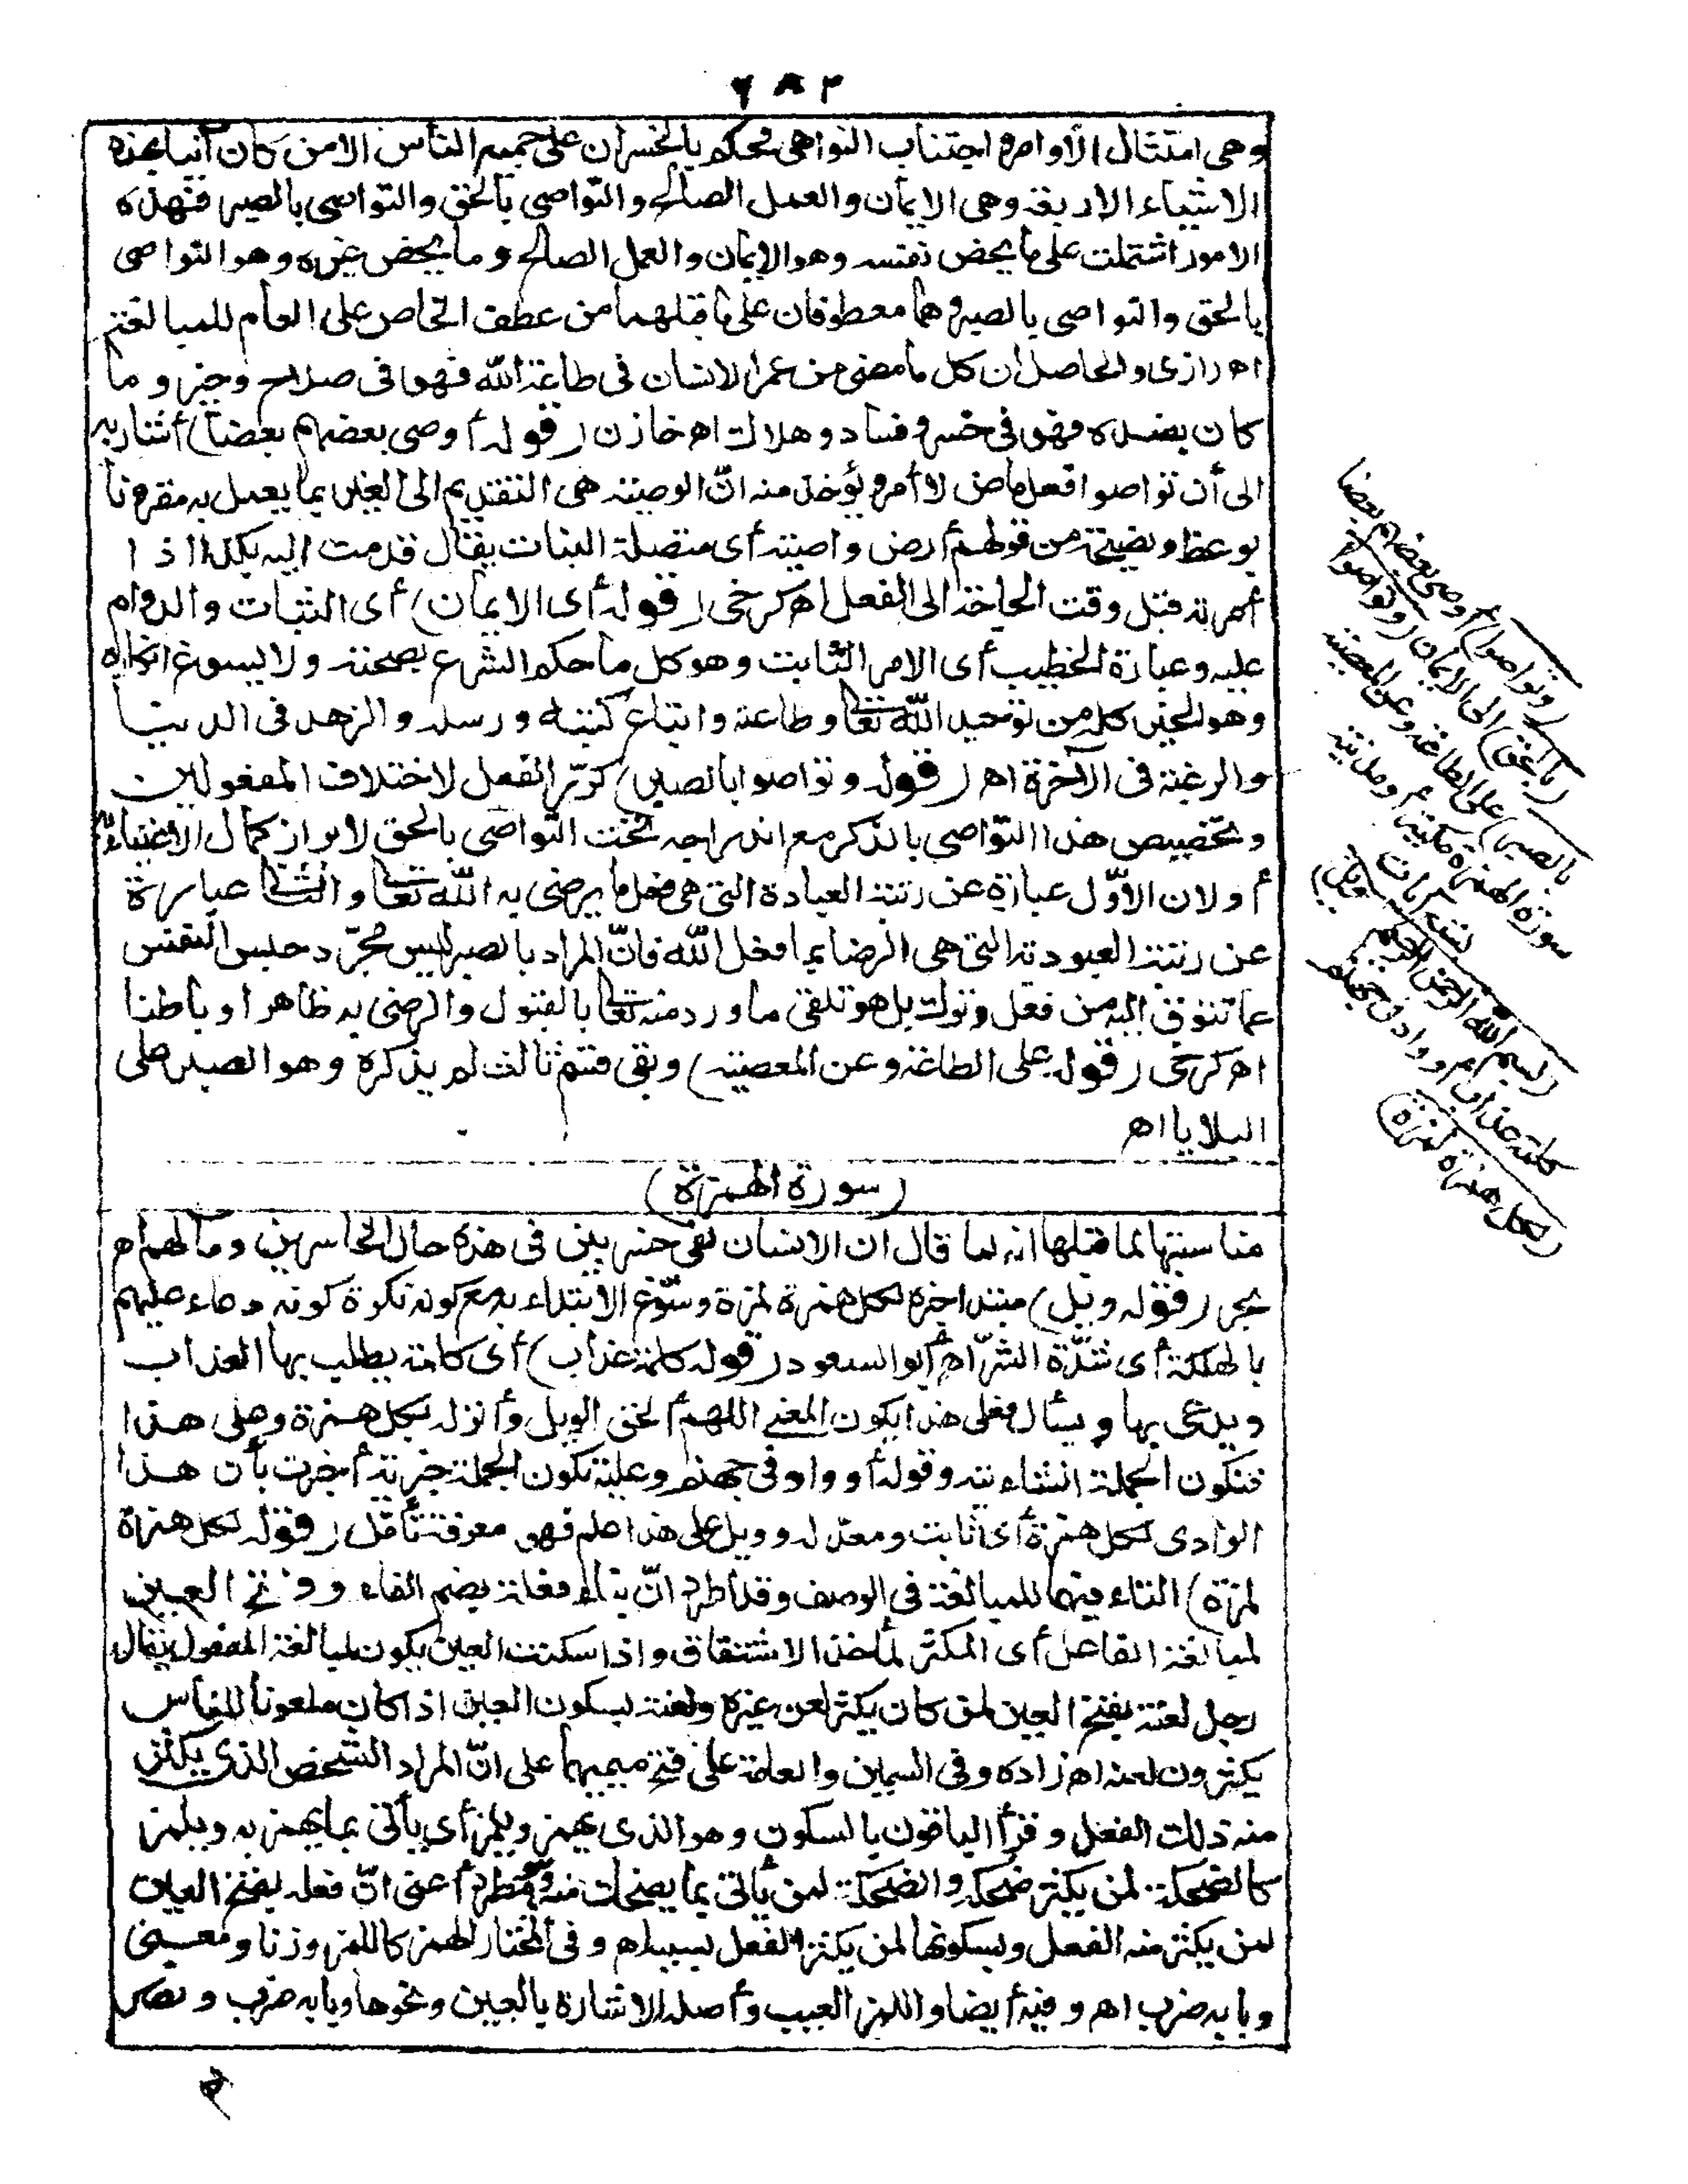 ٢٨٦
وهي امتثال الأوامر واجتناب النواهي فحكم بالخسران على جميع الناس الا من كان آتيا بهذه
الاشياء الاربعة وهي الايمان والعمل الصالح والتواصي بالحق والتواصي بالصبر فهذه
الامور اشتملت على ما يخص نفسه وهو الايمان والعمل الصالح وما يخص غيره وهو التواصي
بالحق والتواصي بالصبر وهما معطوفان على ما قبلهما من عطف الخاص على العام للمبالغة
اه رازى والحاصل ان كل ما مضى من عمر الانسان في طاعة الله فهو في صلاح وخير وما
كان بضده فهو في خسر وفساد وهلاك اه خازن (قوله أوصى بعضهم بعضا) أشار به
الى أن تواصوا فعل ماض لا أمر ويؤخذ منه انّ الوصية هي التقديم الى الغير بما يعمل به مقرونا
بوعظ ونصيحة من قولهم أرض واصية أى متصلة النبات يقال قدمت اليه بكذا اذا
أمرته قبل وقت الحاجة الى الفعل اه كرخى (قوله أى الايمان) أى الثبات والدوام
عليه وعبارة الخطيب أى الامر الثابت وهو كل ما حكم الشرع بصحته ولا يسوغ انكاره
وهو الخير كله من توحيد الله تعالى وطاعة واتباع كتبه ورسله والزهد في الدنيا
والرغبة في الآخرة اه (قوله وتواصوا بالصبر) كرّر الفعل لاختلاف المفعولين
وتخصيص هذا التواصي بالذكر مع اندراجه تحت التواصي بالحق لابراز كمال الاعتناء به
أو لان الأوّل عبارة عن رتبة العبادة التي هي فعل ما يرضى به الله تعالى والثاني عبارة
عن رتبة العبودية التي هي الرضا بما فعل الله فانّ المراد بالصبر ليس مجرّد حبس النفس
عما تتوق اليه من فعل وترك بل هو تلقى ما ورد منه تعالى بالقبول والرضى به ظاهرا وباطنا
اه كرخى (قوله على الطاعة وعن المعصية) وبقى قسم ثالث لم يذكره وهو الصبر على
البلايا اه
(سورة الهمزة)
مناسبتها لما قبلها انه لما قال ان الانسان لفى خسر بين في هذه حال الخاسرين ومآلهم اه
بحر (قوله ويل) مبتدا خبره لكل همزة لمزة وسوّغ الابتداء به مع كونه نكرة كونه دعاء عليهم
بالهلكة أى شدّة الشرّ اه أبو السعود (قوله كلمة عذاب) أى كلمة يطلب بها العذاب
ويدعى بها ويسأل فعلى هذا يكون المعنى اللهم ألحق الويل وأنزله بكل همزة وعلى هذا
فتكون الجملة انشائية وقوله أو واد في جهنم وعليه تكون الجملة خبرية أخبرت بأن هذا
الوادى لكل همزة أى ثابت ومعدّ له وويل على هذا علم فهو معرفة تأمّل (قوله لكل همزة
لمزة) التاء فيهما للمبالغة في الوصف وقد اطرد انّ بناء فعلة بضم الفاء وفتح العين
لمبالغة الفاعل أى المكثر لمأخذ الاشتقاق واذا سكنت العين يكون لمبالغة المفعول يقال
رجل لعنة بفتح العين لمن كان يكثر لعن غيره ولعنة بسكون العين اذا كان ملعونا للناس
يكثرون لعنه اه زاده وفي السمين والعامة على فتح ميميهما على انّ المراد الشخص الذى يكثر
منه ذلك الفعل وقرأ الباقون بالسكون وهو الذى يهمز ويلمز أى يأتى بما يهمز به ويلمز
كالضحكة لمن يكثر ضحكه والضحكة لمن يأتى بما يضحك منه وهو مطرد أعنى انّ فعلة بفتح العين
لمن يكثر منه الفعل وبسكونها لمن يكثر الفعل بسببه اه وفي المختار الهمز كاللمز وزنا ومعنى
وبابه ضرب اه وفيه أيضا واللمز العيب وأصله الاشارة بالعين ونحوها وبابه ضرب ونصر
(وتواصوا) أوصى بعضهم بعضا
(بالحق) الى الايمان (وتواصوا
بالصبر) على الطاعة وعن المعصية
سورة الهمزة مكية أو مدنية
تسع آيات
(بسم الله الرحمن الرحيم ويل)
كلمة عذاب أو واد في جهنم
(لكل همزة لمزة)